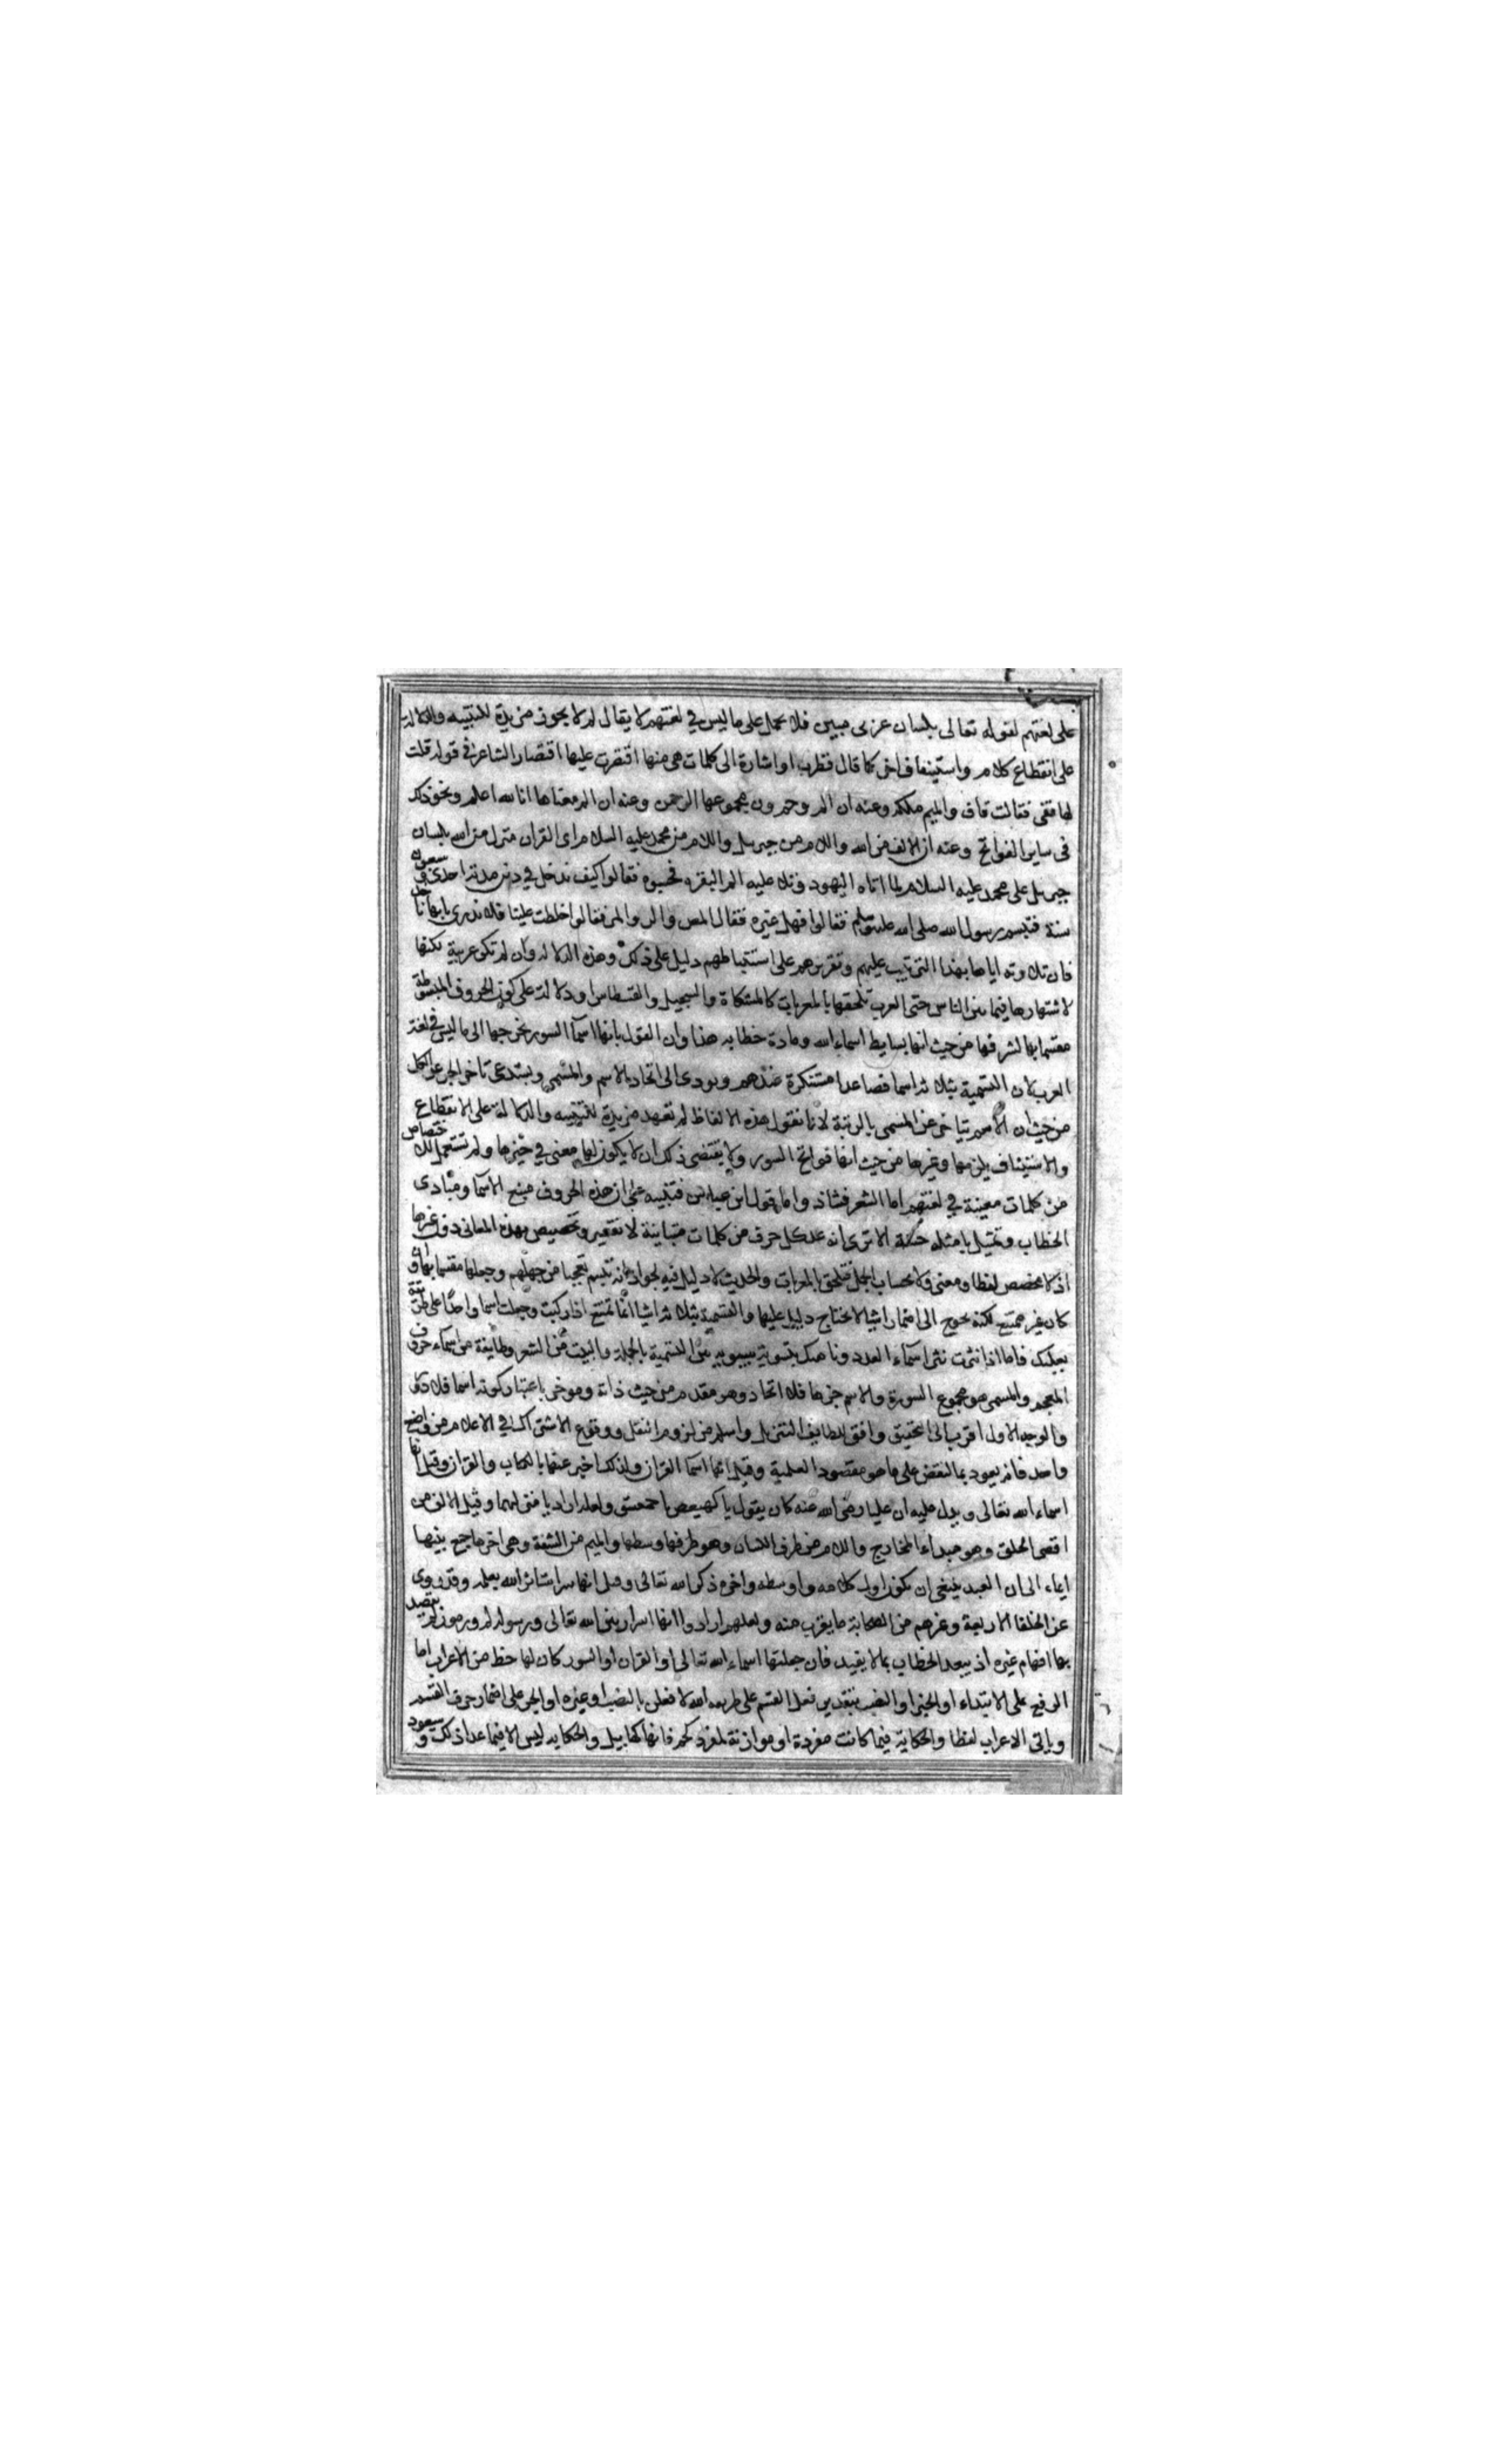 على لغتهم لقوله تعالى بلسان عربى مبين فلا يحمل على ما ليس في لغتهم لا يقال لم لا يجوز مزيدة للتنبيه والدلالة
على انقطاع كلام واستيناف اخر كما قال قطرب او اشارة الى كلمات هى منها اقتصرت عليها اقتصار الشاعر في قوله قلت
لها قفى فقالت قاف والميم ملكه وعنه ان الر وحم ون مجموعها الرحمن وعنه ان الم معناها انا الله اعلم ونحو ذلك
فى ساير الفواتح وعنه ان الالف من الله واللام من جبريل والميم من محمد عليه السلام اى القران منزل من الله بلسان
جبريل على محمد عليه السلام لما اتاه اليهود وتلا عليه الم البقرة فحسبوه فقالوا كيف ندخل في دين مدته احدى وسبعون
سنة فتبسم رسول الله صلى الله عليه وسلم فقالوا فهل غيره فقال المص والر والمر فقالوا خلطت علينا فلا ندرى بايها ناخذ
فان تلاوته اياها بهذا الترتيب عليهم وتقريرهم على استنباطهم دليل على ذلك وهذه الدلالة وان لم تكن عربية لكنها
لاشتهارها فيما بين الناس حتى العرب تلحقها بالمعربات كالمشكاة والسجيل والقسطاس او دلالة على كون الحروف المبسوطة
مقسما بها لشرفها من حيث انها بسايط اسماء الله ومادة خطابه هذا وان القول بانها اسماء السور يخرجها الى ما ليس في لغة
العرب لان التسمية بثلاثة اسما فصاعدا مستنكرة عندهم ويودى الى اتحاد الاسم والمسمى ويستدعى تاخر الجزء عن الكل
من حيث ان الاسم يتاخر عن المسمى بالرتبة لانا نقول هذه الالفاظ لم تعهد مزيدة للتنبيه والدلالة على الانقطاع
والاستيناف يلزمها وغيرها من حيث انها فواتح السور ولا يقتضى ذلك ان لا يكون لها معنى في حيزها ولم تستعمل للاختصاص
من كلمات معينة في لغتهم اما الشعر فشاذ واما قول ابن عباس فتنبيه على ان هذه الحروف منبع الاسما ومبادى
الخطاب وتمثيل بامثلة حسنة الا ترى انه عد كل حرف من كلمات متباينة لا تفسير وتخصيص بهذه المعانى دون غيرها
اذ لا مخصص لفظا ومعنى ولا بحساب الجمل فتلحق بالمعربات والحديث لا دليل فيه لجواز انه تبسم تعجبا من جهلهم وجعلها مقسما بها وان
كان غير ممتنع لكنه يحوج الى اضمار اشيا لا يحتاج دليل عليها والتسمية بثلاثة اشيا انما تمتنع اذا ركبت وجعلت اسما واحدا على طريقة
بعلبك فاما اذا نثرت نثر اسماء العدد وناهيك بتسوية سيبويه بين التسمية بالجملة والبيت من الشعر وطايفة من اسماء حروف
المعجم والمسمى هو مجموع السورة والاسم جزءها فلا اتحاد وهو مقدم من حيث ذاته وموخر باعتبار كونه اسما فلا دور
والوجه الاول اقرب الى التحقيق وافق للطايف التنزيل واسلم من لزوم النقل ووقوع الاشتراك في الاعلام من واضع
واحد فانه يعود بالنقض على ما هو مقصود العلمية وقيل انها اسما القران ولذلك اخبر عنها بالكتاب والقران وقيل انها
اسماء الله تعالى ويدل عليه ان عليا رضى الله عنه كان يقول يا كهيعص يا حمعسق ولعله اراد يا منزلهما وقيل الالف من
اقصى الحلق وهو مبداء المخارج واللام من طرف اللسان وهو طرفها وسطها والميم من الشفة وهى اخرها جمع بينها
ايماء الى ان العبد ينبغى ان يكون اول كلامه واوسطه واخره ذكر الله تعالى وقيل انها سر استاثر الله بعلمه وقد روى
عن الخلفا الاربعة وغيرهم من الصحابة ما يقرب منه ولعلهم ارادوا انها اسرار بين الله تعالى ورسوله ورموز لم يقصد
بها افهام غيره اذ يبعد الخطاب بما لا يفيد فان جعلتها اسماء الله تعالى او القران او السور كان لها حظ من الاعراب اما
الرفع على الابتداء او الخبر او النصب بتقدير فعل القسم على طريقة الله لافعلن بالنصب او غيره او الجر على اضمار حرف القسم
وياتى الاعراب لفظا والحكاية فيما كانت مفردة او موازنة لمفرد كحم فانها كهابيل والحكاية ليس الا فيما عدا ذلك وسيعود